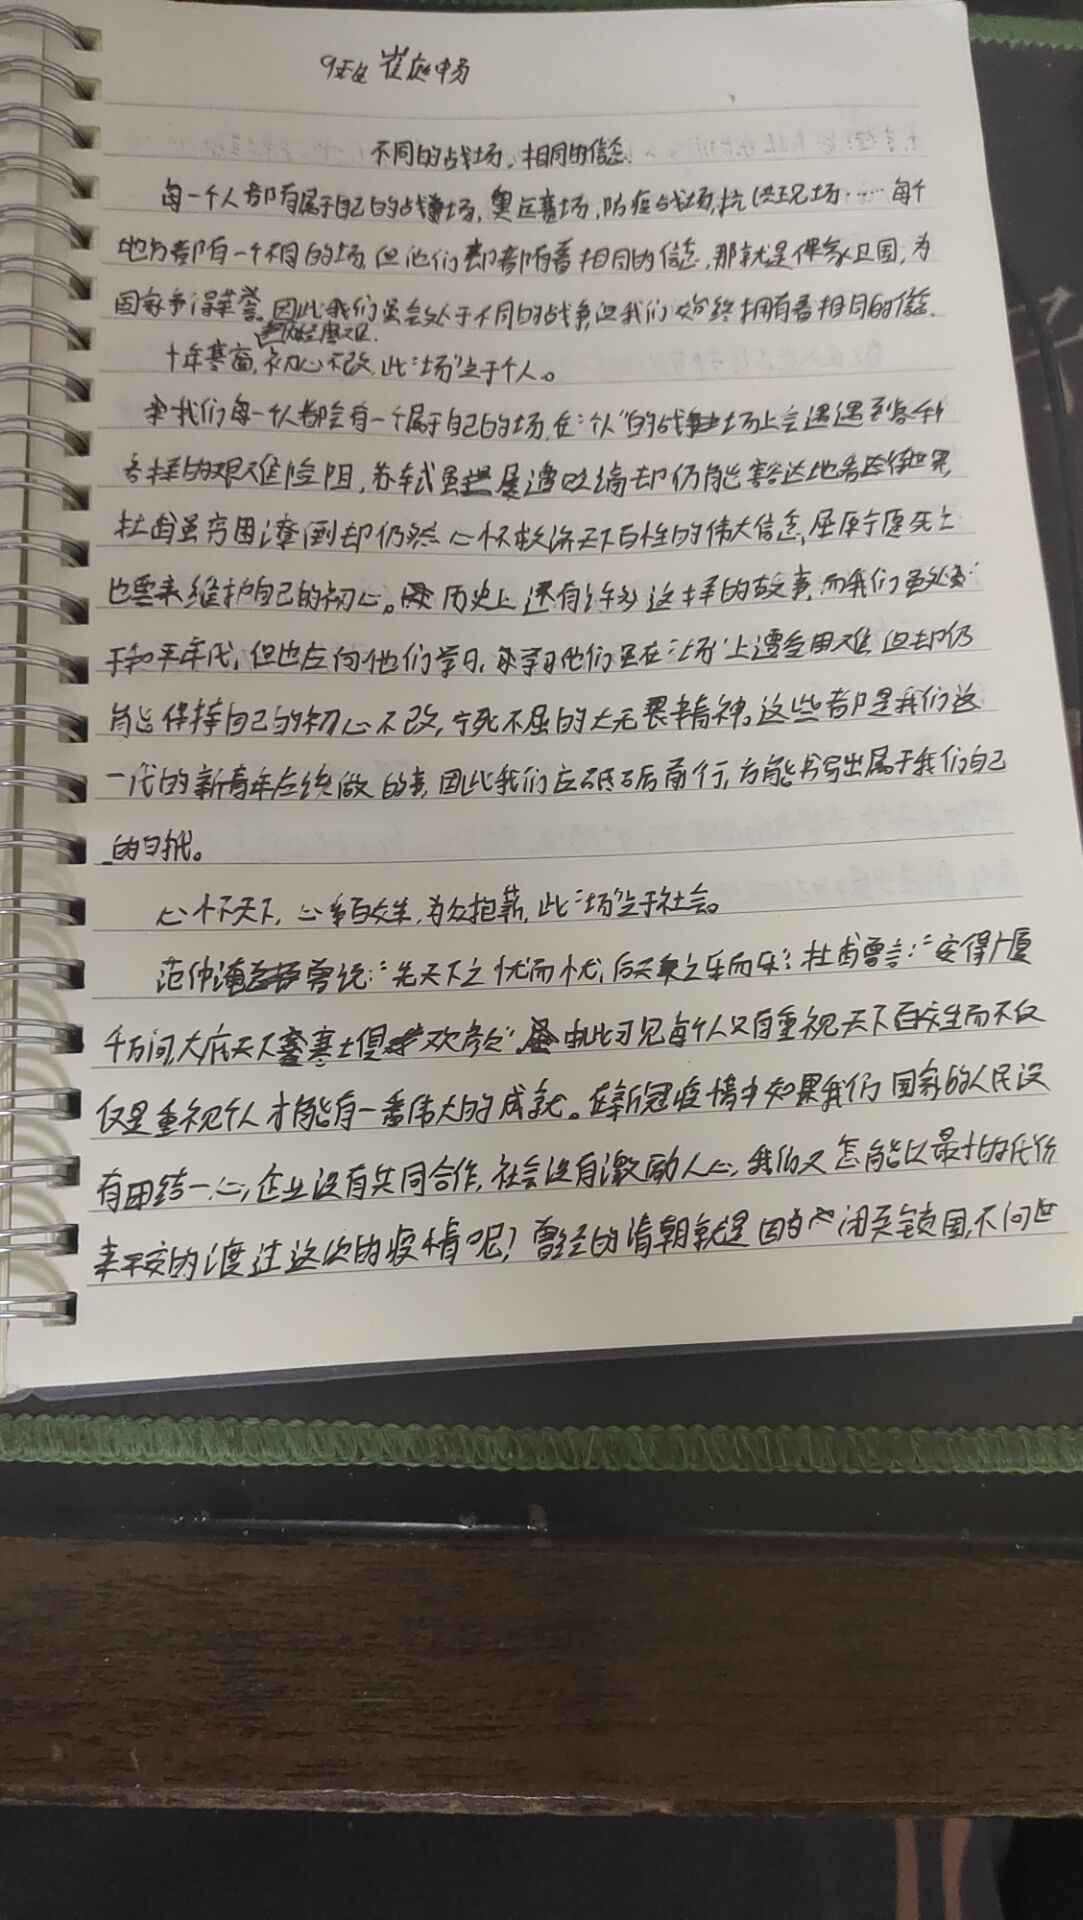 9班 崔应畅
不同的战场,相同的信念.
每一个人都有属于自己的战场,奥运赛场,防疫战场,抗洪现场……每个
地方都有一个不同的场,但他们却都有着相同的信念,那就是保家卫国,为
国家争得荣誉。因此我们虽会处于不同的战争但我们始终拥有着相同的信念.
十年寒窗,初心不改,此“场”立于个人。
我们每一个人都会有一个属于自己的场,在“个人”的战场上会遭遇到各种
各样的艰难险阻,苏轼虽屡遭贬谪却仍能豁达地看待世界,
杜甫虽穷困潦倒却仍然心怀救济天下百姓的伟大信念,屈原宁愿死亡
也要来维护自己的初心。历史上还有许多这样的故事,而我们虽处
于和平年代,但也应向他们学习,学习他们虽在“场”上遭受困难,但却仍
能保持自己的初心不改,宁死不屈的大无畏精神。这些都是我们这
一代的新青年应该做的事,因此我们应砥砺前行,方能书写出属于我们自己
的
心怀天下,心系百姓,为众抱薪,此“场”立于社会。
范仲淹曾说:“先天下之忧而忧,后天下之乐而乐”;杜甫曾言:“安得广厦
千万间,大庇天下寒士俱欢颜”。由此可见每个人只有重视天下百姓生而不仅
仅是重视个人才能有一番伟大的成就。在新冠疫情中如果我们国家的人民没
有团结一心,企业没有共同合作,社会没有激励人心,我们又怎能以最小的代价
来平安的渡过这次的疫情呢?曾经的清朝就是因为闭关锁国,不问世